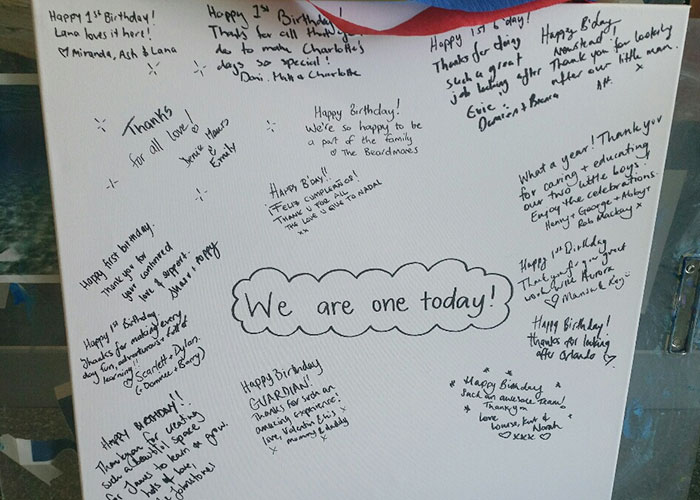 Happy 1st Birthday!
Lana loves it here!
♡ Miranda, Ash & Lana
Happy 1st Birthday!
Thanks for all that you
do to make Charlotte's
days so special!
Dani, Matt & Charlotte
Happy 1st b'day!
Thanks for doing
such a great
job looking after
Evie
Damien &
Happy B'day
Thank you for looking
after our little man.
x
Thanks
for all love!
&
Emily
Happy Birthday!
We're so happy to be
a part of the family
♡ The Beardmores
HAPPY B'DAY!!
¡FELIZ CUMPLEAÑOS!
THANK U FOR ALL
THE LOVE U GIVE TO NADAL
xx
What a year! Thank you
for caring + educating
our two little boys.
Enjoy the celebrations.
Henry + George + Abby +
Rob Mackay x
Happy first birthday.
Thank you for
your continued
love & support.
Happy 1st Birthday
Thank you for your great
work with Aurora
♡
We are one today!
Happy 1st Birthday.
Thanks for making every
day fun, adventurous & full of
learning!!
♡ Scarlett + Dylan.
(+ Dommee + Barry)
Happy Birthday!
thanks for looking
after Orlando ♡
Happy Birthday
GUARDIAN!
Thanks for such an
amazing experience!
love, Valentin
mommy & daddy
x x
Happy Birthday
Such an awesome team!
Thankyou
Love
Louise, Kurt &
Norah
♡ xxxx ♡
HAPPY BIRTHDAY!!
Thankyou for creating
such a beautiful space
for James to learn & grow.
lots of love,
Johnstones